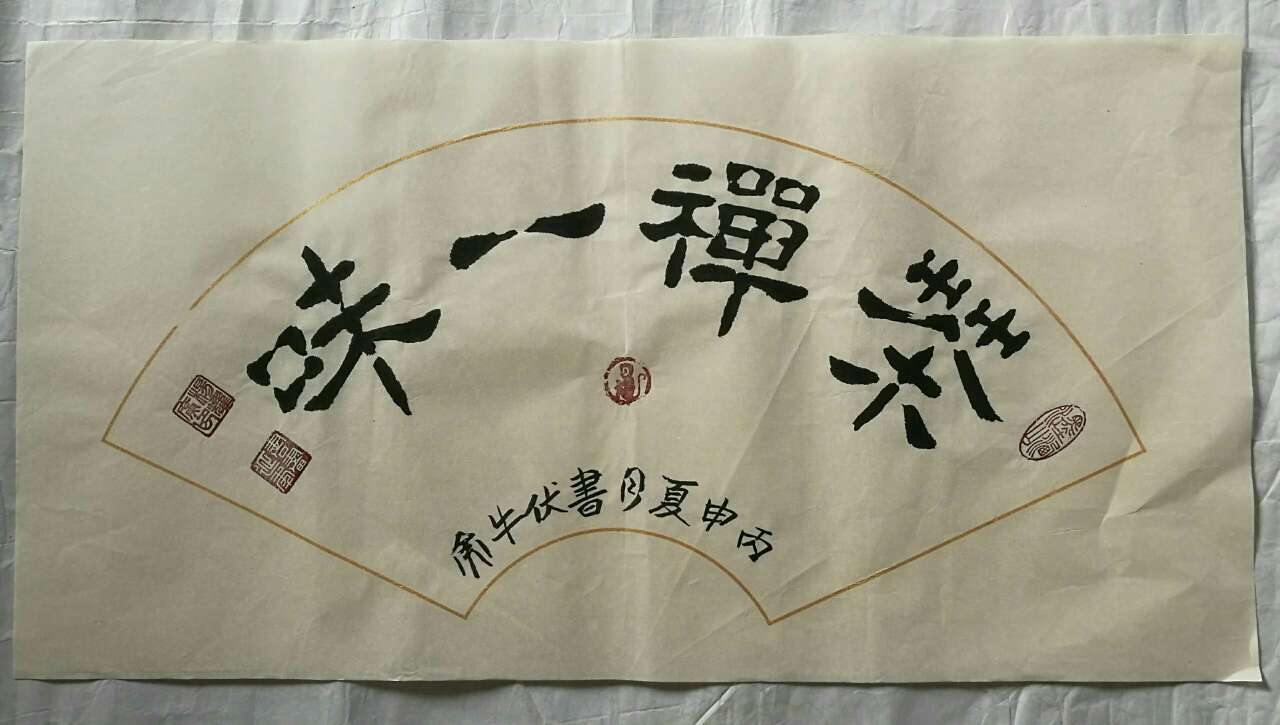 茶禪一味
丙申夏月書伏牛